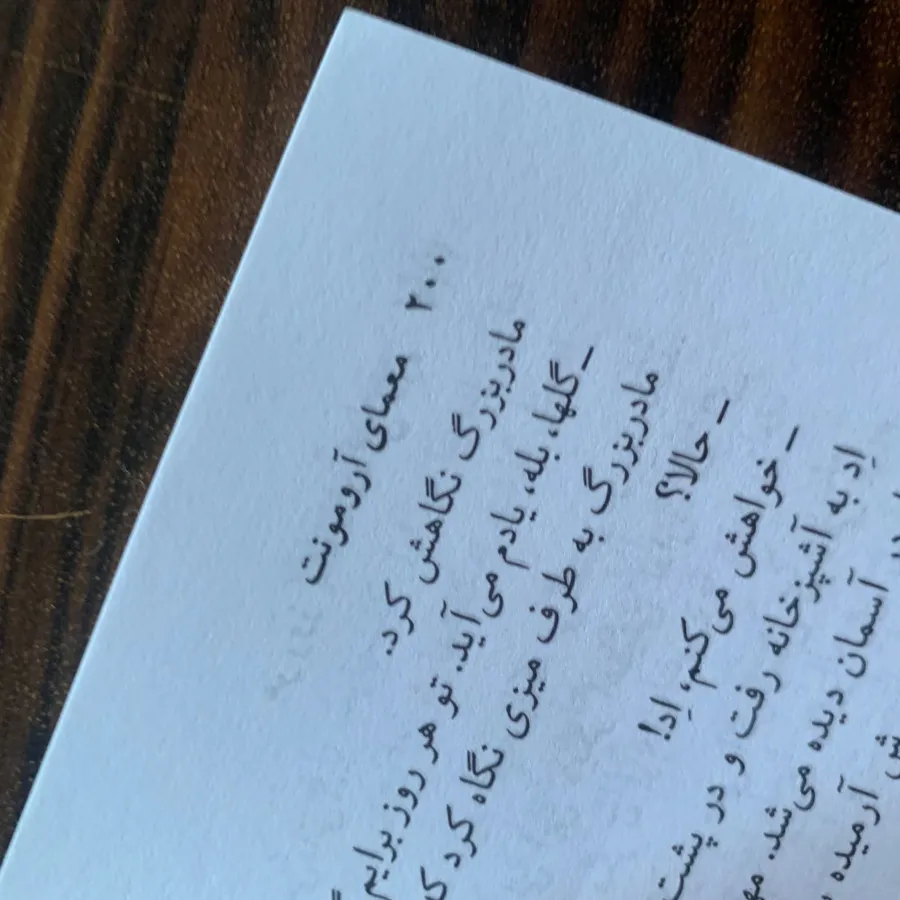 ۲۰۰ معمای آرومونت
مادربزرگ نگاهش کرد.
ـ گلها، بله، یادم می‌آید. تو هر روز برایم
مادربزرگ به طرف میزی نگاه کرد
ـ حالا؟
ـ خواهش می‌کنم، اِد!
اِد به آشپزخانه رفت و در پشت
آسمان دیده می‌شد.
آرمیده